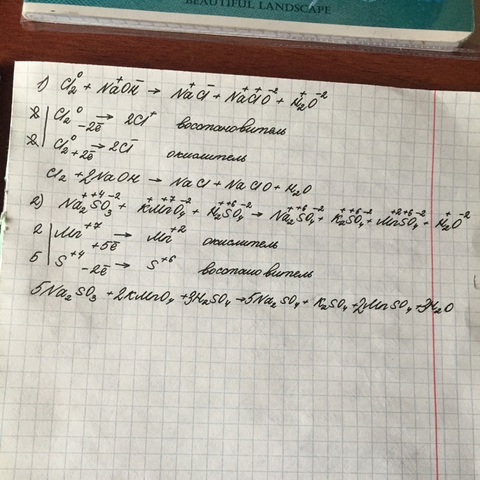 BEAUTIFUL LANDSCAPE
1) Cl₂⁰ + Na⁺OH⁻ → Na⁺Cl⁻ + Na⁺Cl⁺O⁻² + H₂⁺O⁻²
2 | Cl₂⁰ -2ē → 2Cl⁺ восстановитель
2 | Cl₂⁰ +2ē → 2Cl⁻ окислитель
Cl₂ + 2NaOH → NaCl + NaClO + H₂O
2) Na₂⁺S⁺⁴O₃⁻² + K⁺Mn⁺⁷O₄⁻² + H₂⁺S⁺⁶O₄⁻² → Na₂⁺S⁺⁶O₄⁻² + K₂⁺S⁺⁶O₄⁻² + Mn⁺²S⁺⁶O₄⁻² + H₂⁺O⁻²
2 | Mn⁺⁷ +5ē → Mn⁺² окислитель
5 | S⁺⁴ -2ē → S⁺⁶ восстановитель
5Na₂SO₃ + 2KMnO₄ + 3H₂SO₄ → 5Na₂SO₄ + K₂SO₄ + 2MnSO₄ + 3H₂O